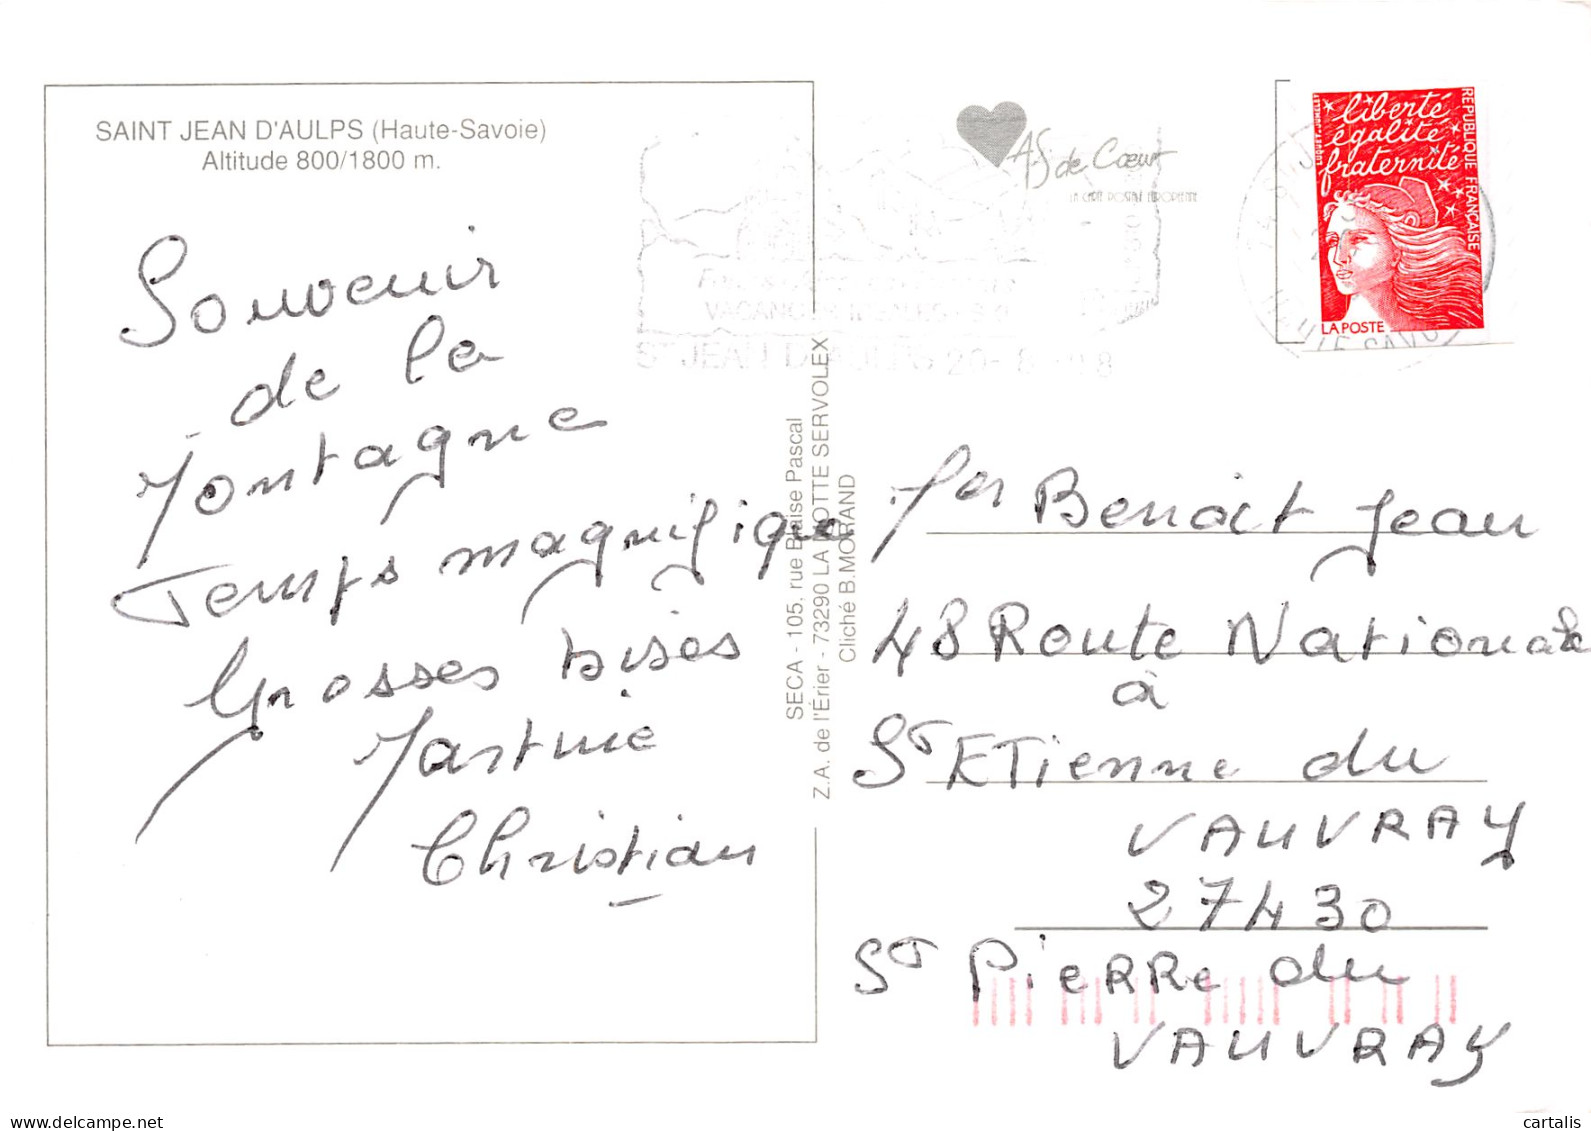 SAINT JEAN D'AULPS (Haute-Savoie)
Altitude 800/1800 m.
Souvenir
de la
Montagne
Temps magnifique
Grosses bises
Martine
Christian
SECA - 105, rue Blaise Pascal
Z.A. de l'Érier - 73290 LA MOTTE SERVOLEX
Cliché B.MORAND
AS de Cœur
LA CARTE POSTALE EUROPÉENNE
ST JEAN D'AULPS 20-8-98
liberté
égalité
fraternité
RÉPUBLIQUE FRANÇAISE
LA POSTE
HAUTE SAVOIE
Benoit Jean
48 Route Nationale
à
St ETienne du
VAUVRAY
27430
St PiERRe du
VAUVRAY
delcampe.net
cartalis